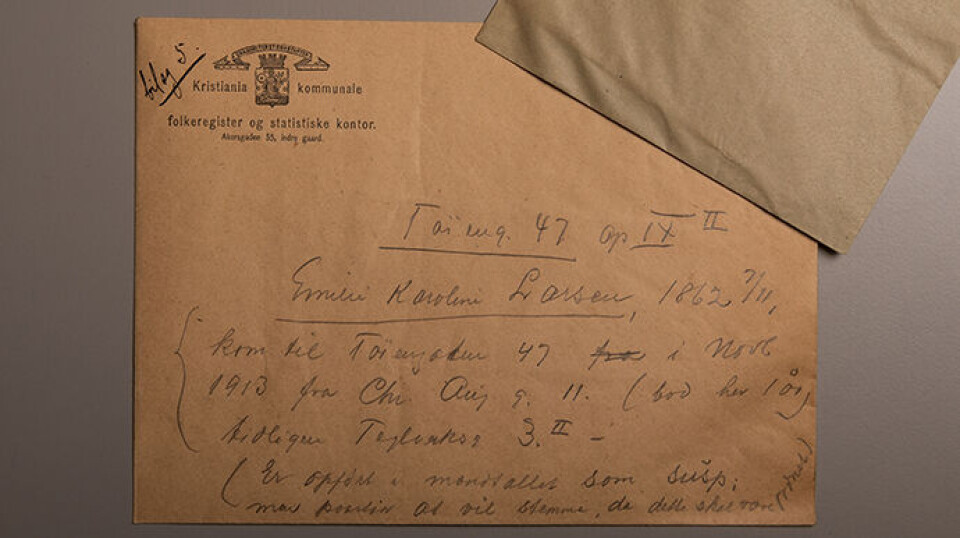 bilag 5.
Kristiania kommunale
folkeregister og statistiske kontor.
Akersgaden 55, indre gaard.
Töieng. 47 op IX II
Emilie Karoline Larsen, 1862 7/11,
kom til Töiengaden 47 fra i Novb
1913 fra Chr. Aug g. 11. (bod her 1 år)
tidligere Teglverksg 3. II –
(Er opført i mandtallet som susp;
men at vil stemme, da dette skal være ordnet)